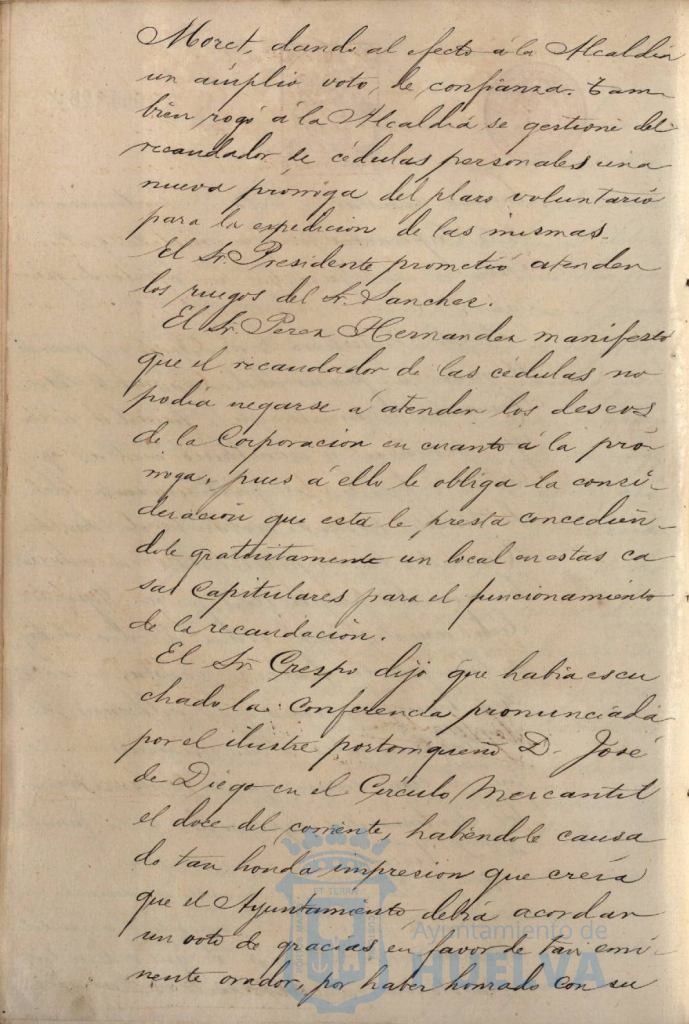 Moret, dando al efecto á la Alcaldía
un ámplio voto, de confianza. Tam-
bien rogó á la Alcaldía se gestione del
recaudador de cédulas personales una
nueva prórroga del plazo voluntario
para la expedicion de las mismas.
El Sr. Presidente prometió atender
los ruegos del Sr. Sanchez.
El Sr. Perez Hernandez manifestó
que el recaudador de las cédulas no
podia negarse á atender los deseos
de la Corporacion en cuanto á la pró-
rroga, pues á ello le obliga la consi-
deración que esta le presta concedién-
dole gratuitamente un local en estas ca
sas Capitulares para el funcionamiento
de la recaudación.
El Sr. Crespo dijo que habia escu
chado la Conferencia pronunciada
por el ilustre portorriqueño D. José
de Diego en el Círculo Mercantil
el doce del corriente, habiéndole causa
do tan honda impresion que creía
que el Ayuntamiento debía acordar
un voto de gracias en favor de tan emi
nente orador, por haber honrado con su
Ayuntamiento de
HUELVA